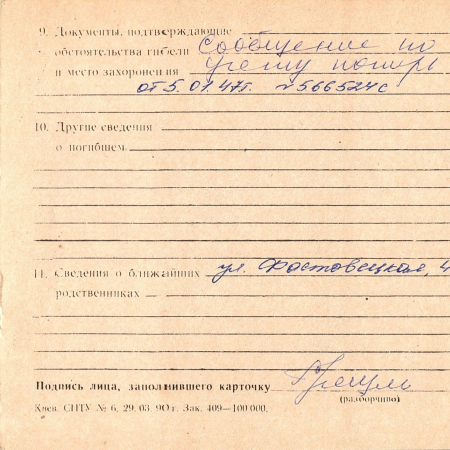 9. Документы, подтверждающие
обстоятельства гибели Сообщение по
и место захоронения учету потерь
от 5.01.47г. №566524с
10. Другие сведения
о погибшем
11. Сведения о ближайших ул. Фастовецкая, 4
родственниках
Подпись лица, заполнившего карточку
(разборчиво)
Киев. СПТУ № 6. 29. 03. 90 г. Зак. 409—100 000.